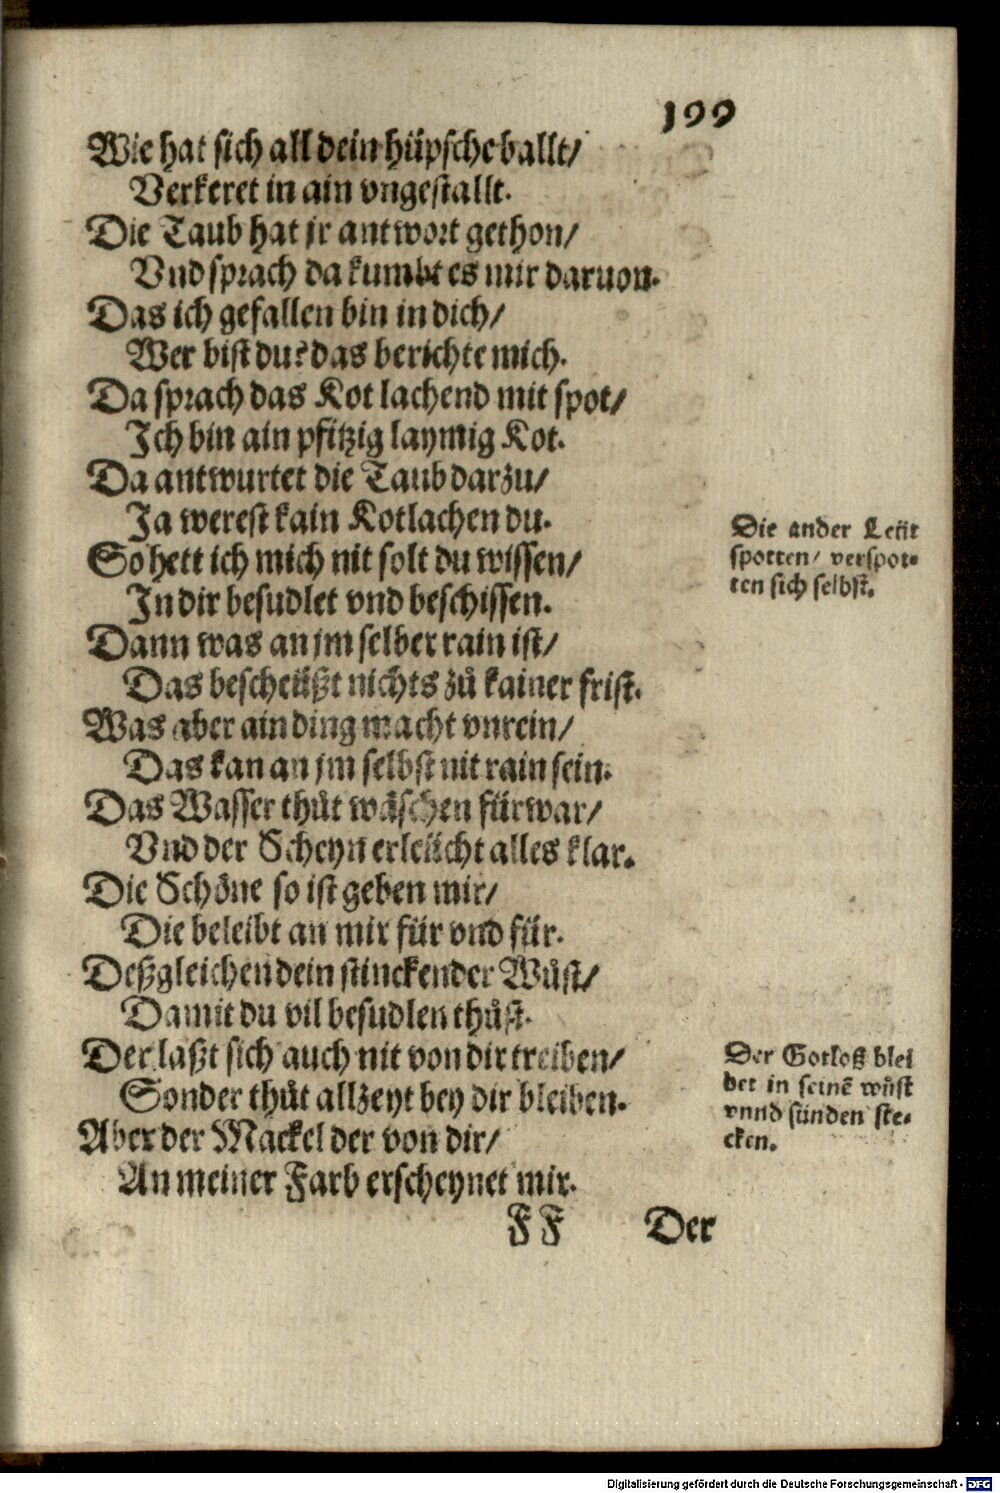 199
Wie hat sich all dein hüpsche ballt/
Verkeret in ain vngestallt.
Die Taub hat jr antwort gethon/
Vnd sprach da kumbt es mir daruon.
Das ich gefallen bin in dich/
Wer bist du? das berichte mich.
Da sprach das Kot lachend mit spot/
Ich bin ain pfitzig laymig Kot.
Da antwurtet die Taub darzu/
Ja werest kain Kotlachen du.
So hett ich mich nit solt du wissen/
In dir besudlet vnd beschissen.
Dann was an jm selber rain ist/
Das bescheüßt nichts zů kainer frist.
Was aber ain ding macht vnrein/
Das kan an jm selbst nit rain sein.
Das Wasser thůt wäschen fürwar/
Vnd der Scheyn erleücht alles klar.
Die Schöne so ist geben mir/
Die beleibt an mir für vnd für.
Deßgleichen dein stinckender Wůst/
Damit du vil besudlen thůst.
Der laßt sich auch nit von dir treiben/
Sonder thůt allzeyt bey dir bleiben.
Aber der Mackel der von dir/
An meiner Farb erscheynet mir.
FF Der
Die ander Leüt
spotten/ verspot-
ten sich selbst.
Der Gotloß blei
bet in seinē wůst
vnnd sünden ste-
cken.
Digitalisierung gefördert durch die Deutsche Forschungsgemeinschaft - DFG